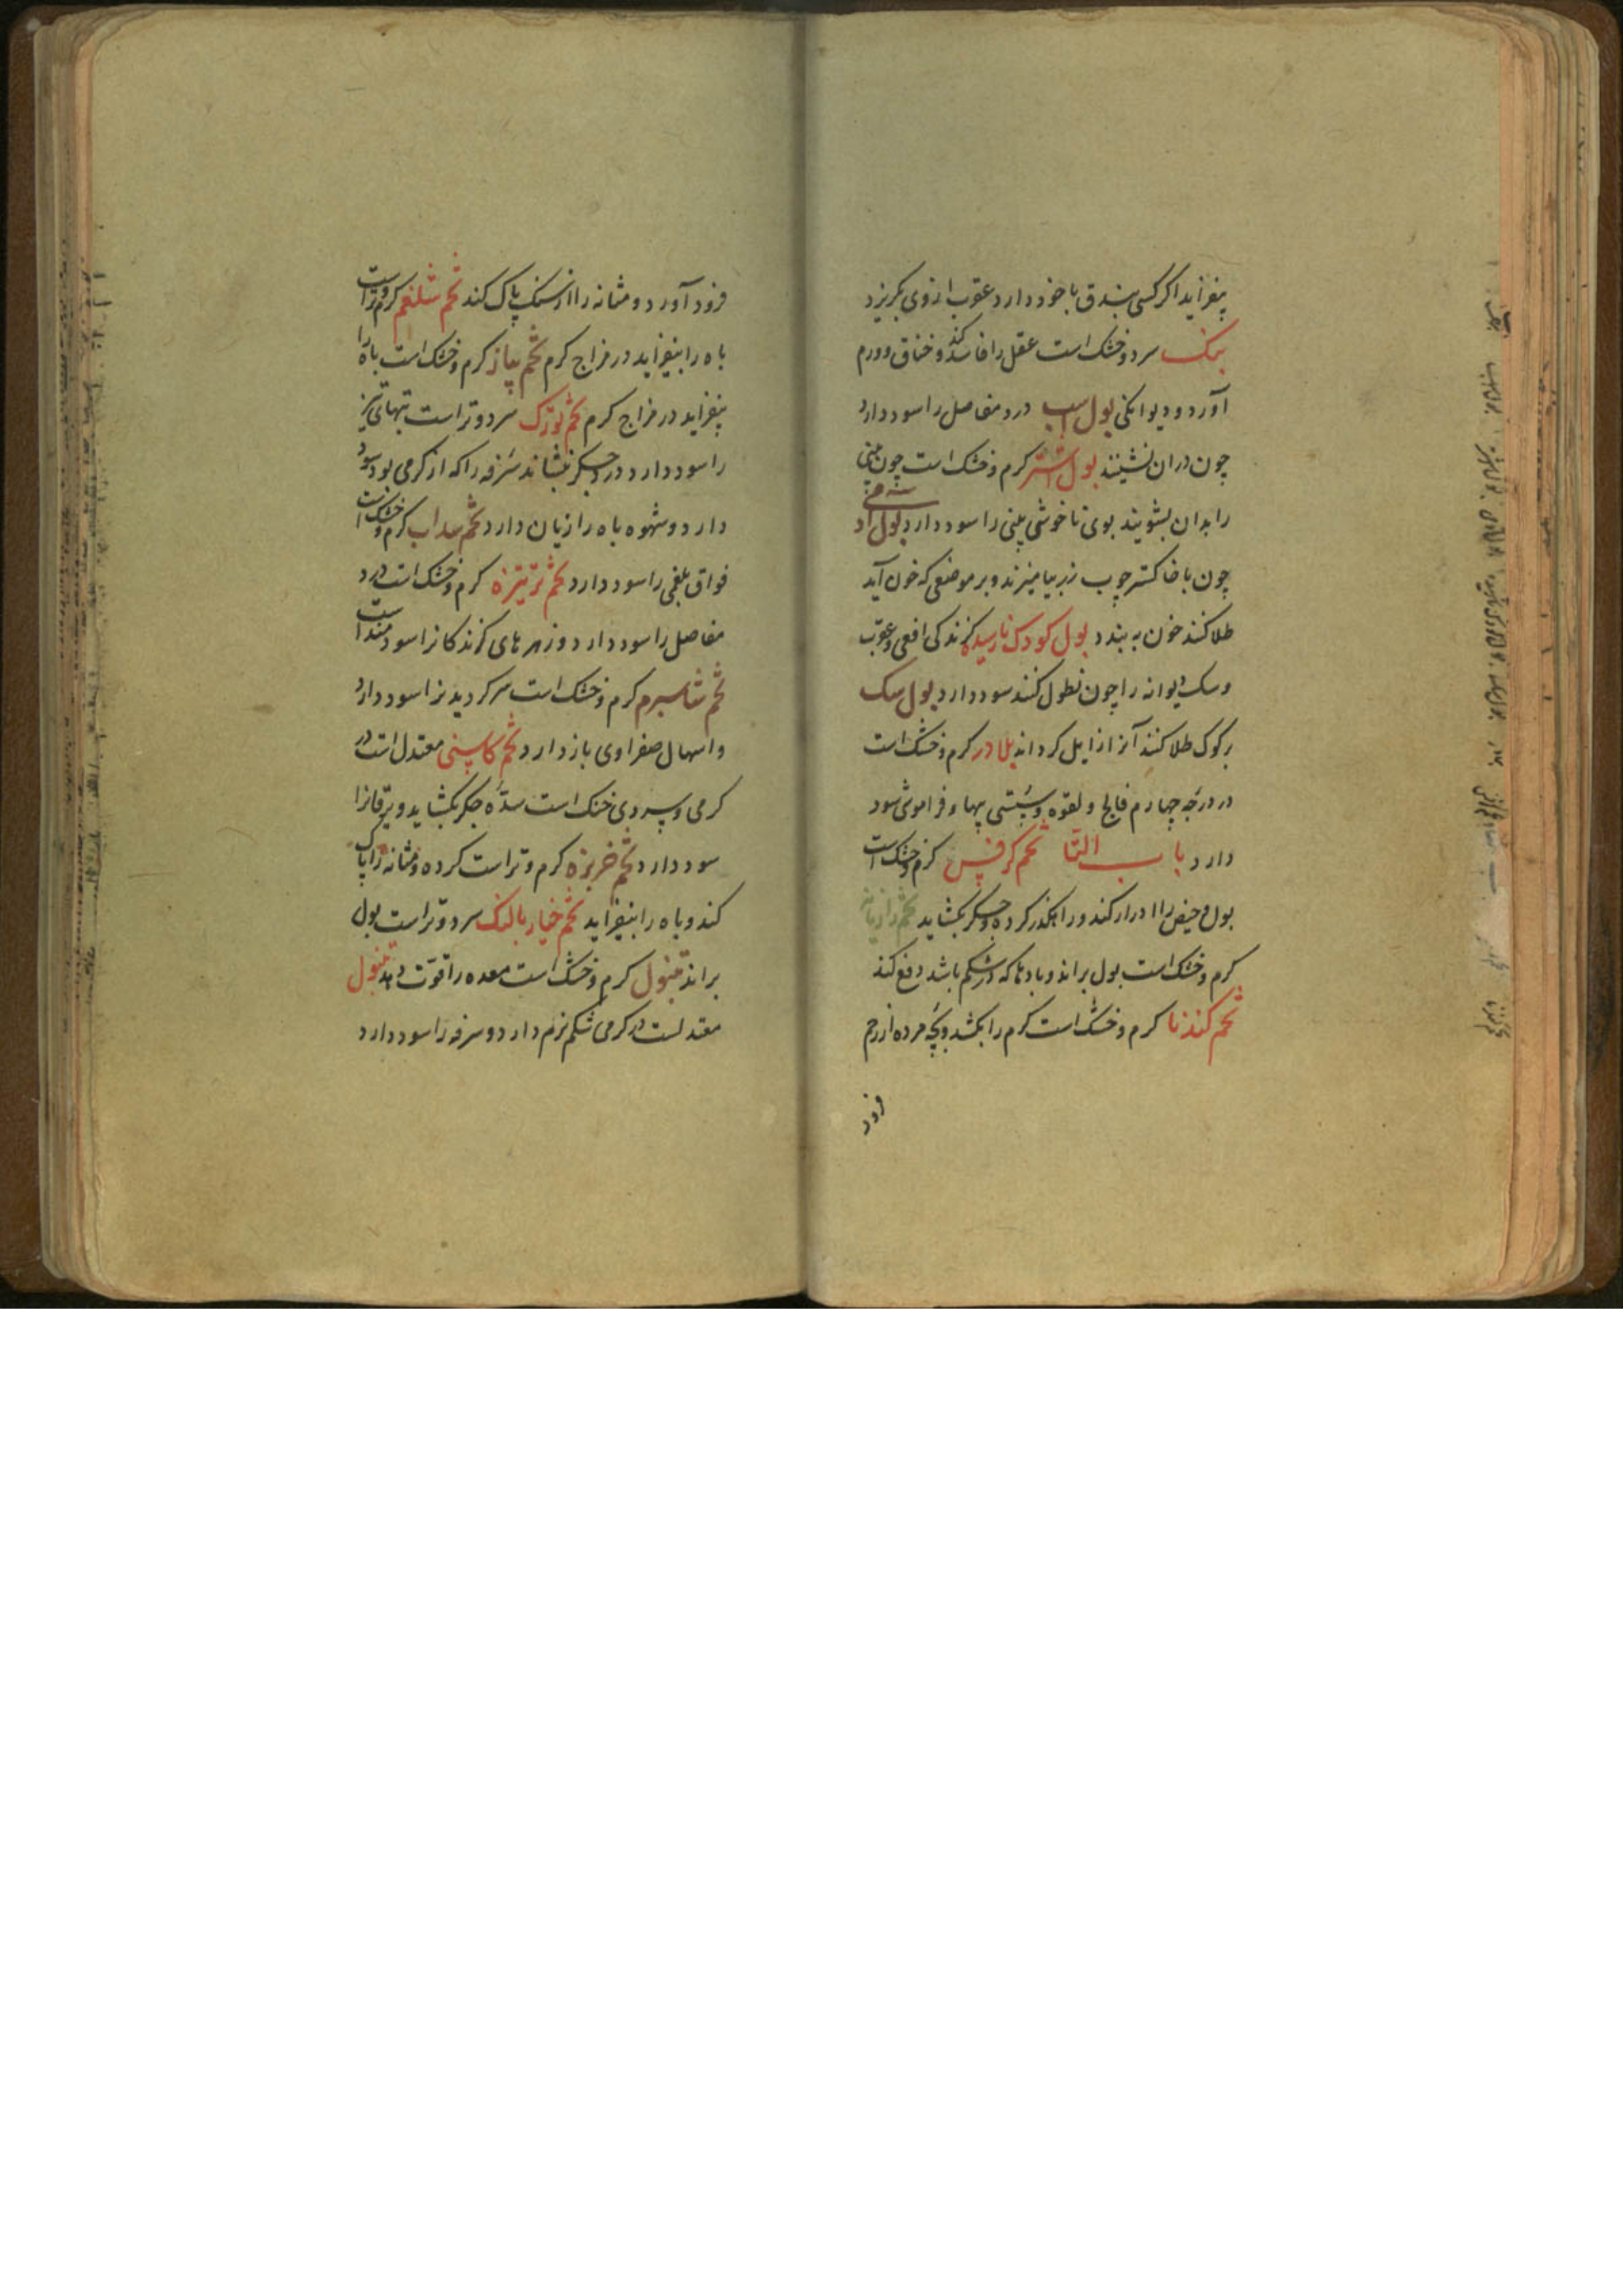 بیفزاید اکر کسی بندق با خود دارد عقرب از وی بکریزد
بنک سرد و خشک است عقل را فاسد کند و خناق و ورم
آورد و دیوانکی بول اسب درد مفاصل را سود دارد
چون دران نشینند بول اشتر کرم و خشک است چون بینی
را بدان بشویند بوی ناخوشی بینی را سود دارد بول آدمی
چون با خاکستر چوب رز بیامیزند و بر موضعی که خون آید
طلا کنند خون به بندد بول کودک نارسیده کزندکی افعی و عقرب
و سک دیوانه را چون نطول کنند سود دارد بول سک
بر کوک طلا کنند آنرا زایل کرداند بلادر کرم و خشک است
در درجه چهارم فالج و لقوه و سستی پیها و فراموشی سود
دارد باب التا تخم کرفس کرم و خشک است
بول و حیض را ادرار کند و راهکذر کرده و جکر بکشاید تخم رازیانه
کرم و خشک است بول براند و بادها که در شکم باشد دفع کند
تخم کندنا کرم و خشک است کرم را بکشد و بچه مرده از رحم
فرود
فرود آورد و مثانه را از سنک پاک کند تخم شلغم کرم و تر است
باه را بیفزاید در مزاج کرم تخم پیاز کرم و خشک است باه را
بیفزاید در مزاج کرم تخم تورک سرد و تر است تبهای تیز
را سود دارد و درد جکر بنشاند سرفه را که از کرمی بود سود
دارد و شهوه باه را زیان دارد تخم سداب کرم و خشک است
فواق بلغمی را سود دارد تخم ترتیزه کرم و خشک است درد
مفاصل را سود دارد و زهرهای کزندکانرا سودمند است
تخم شاسبرم کرم و خشک است سر کردیدنرا سود دارد
و اسهال صفراوی باز دارد تخم کاسنی معتدل است در
کرمی و سردی خنک است سده جکر بکشاید و یرقانرا
سود دارد تخم خربزه کرم و تر است کرده و مثانه را پاک
کند و باه را بیفزاید تخم خیار بالنک سرد و تر است بول
براند تنبول کرم و خشک است معده را قوّت دهد
معتدلست در کرمی شکم نرم دارد و سرفه را سود دارد